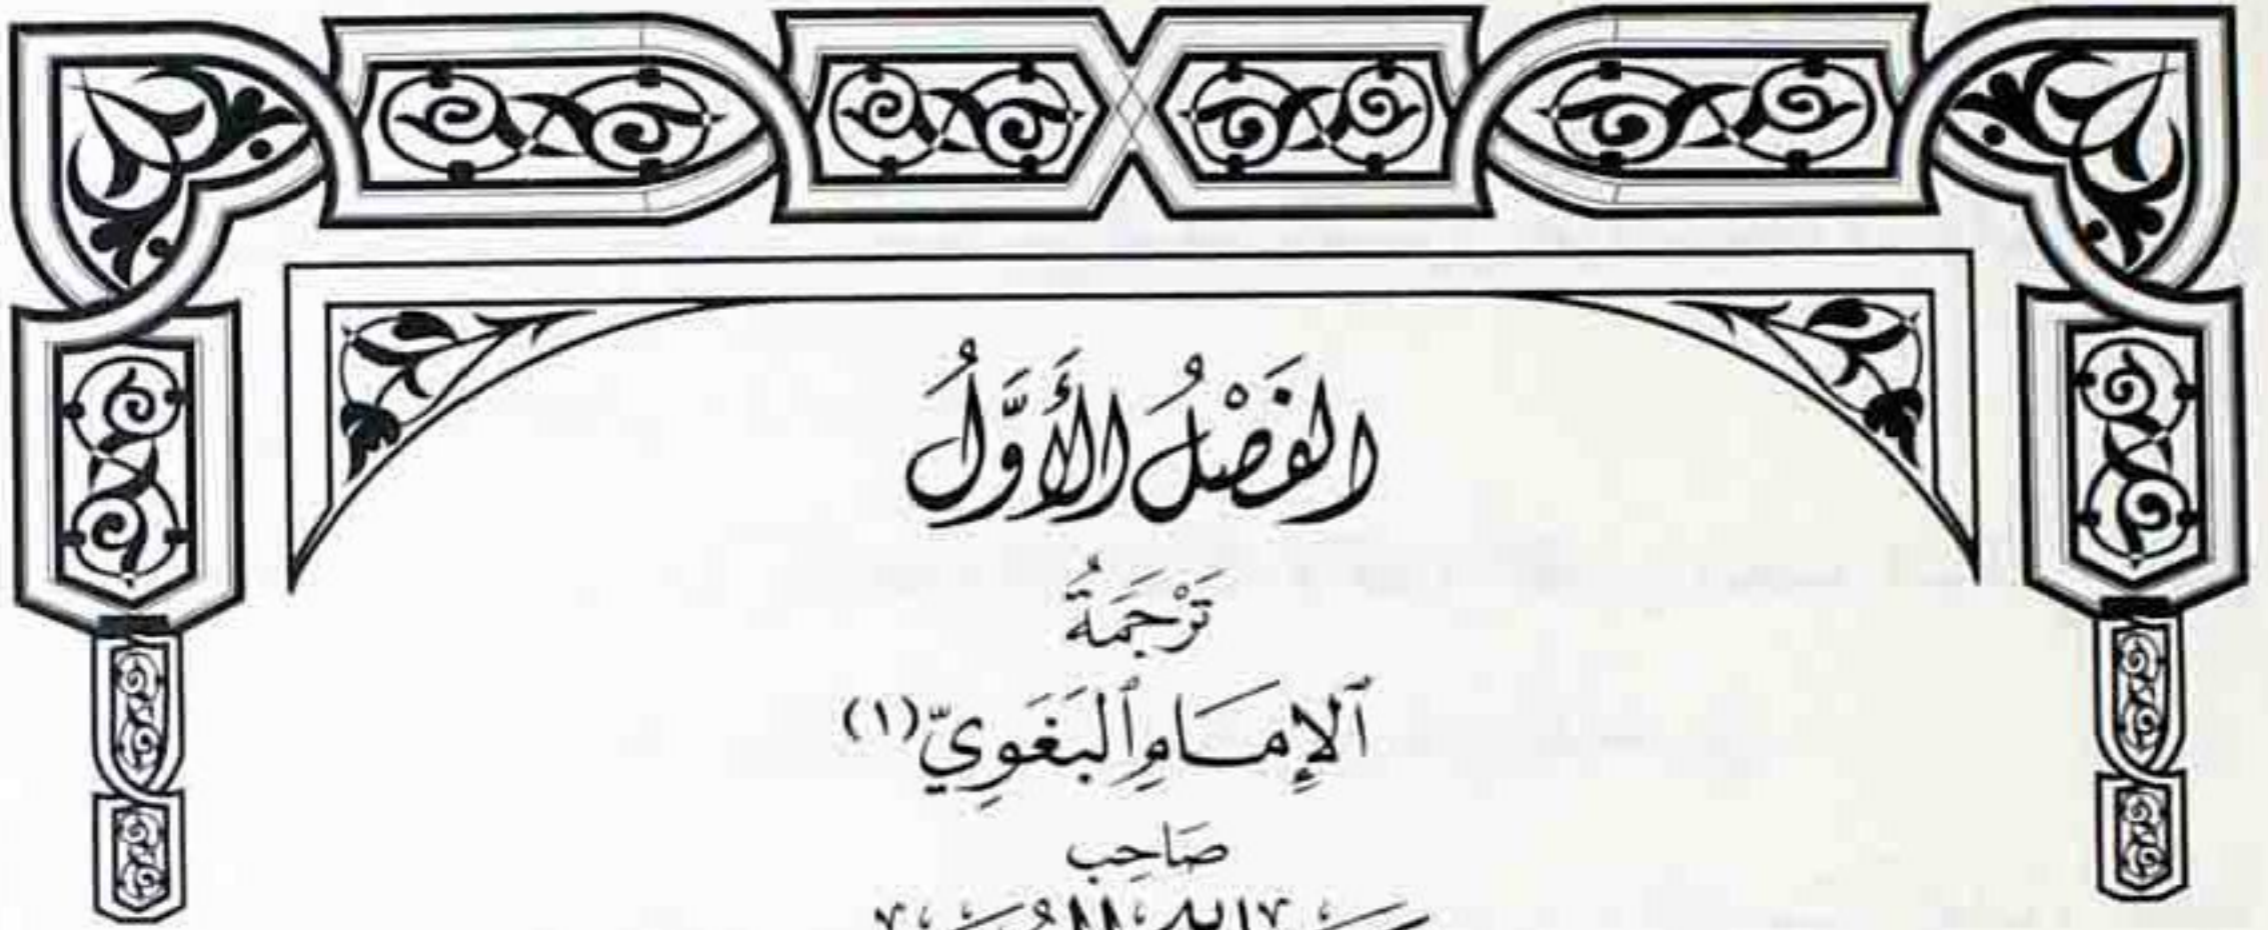 الفَصْلُ الأَوَّلُ
تَرْجَمَةُ
ٱلإِمَامِ ٱلبَغَوِيّ (١)
صَاحِب